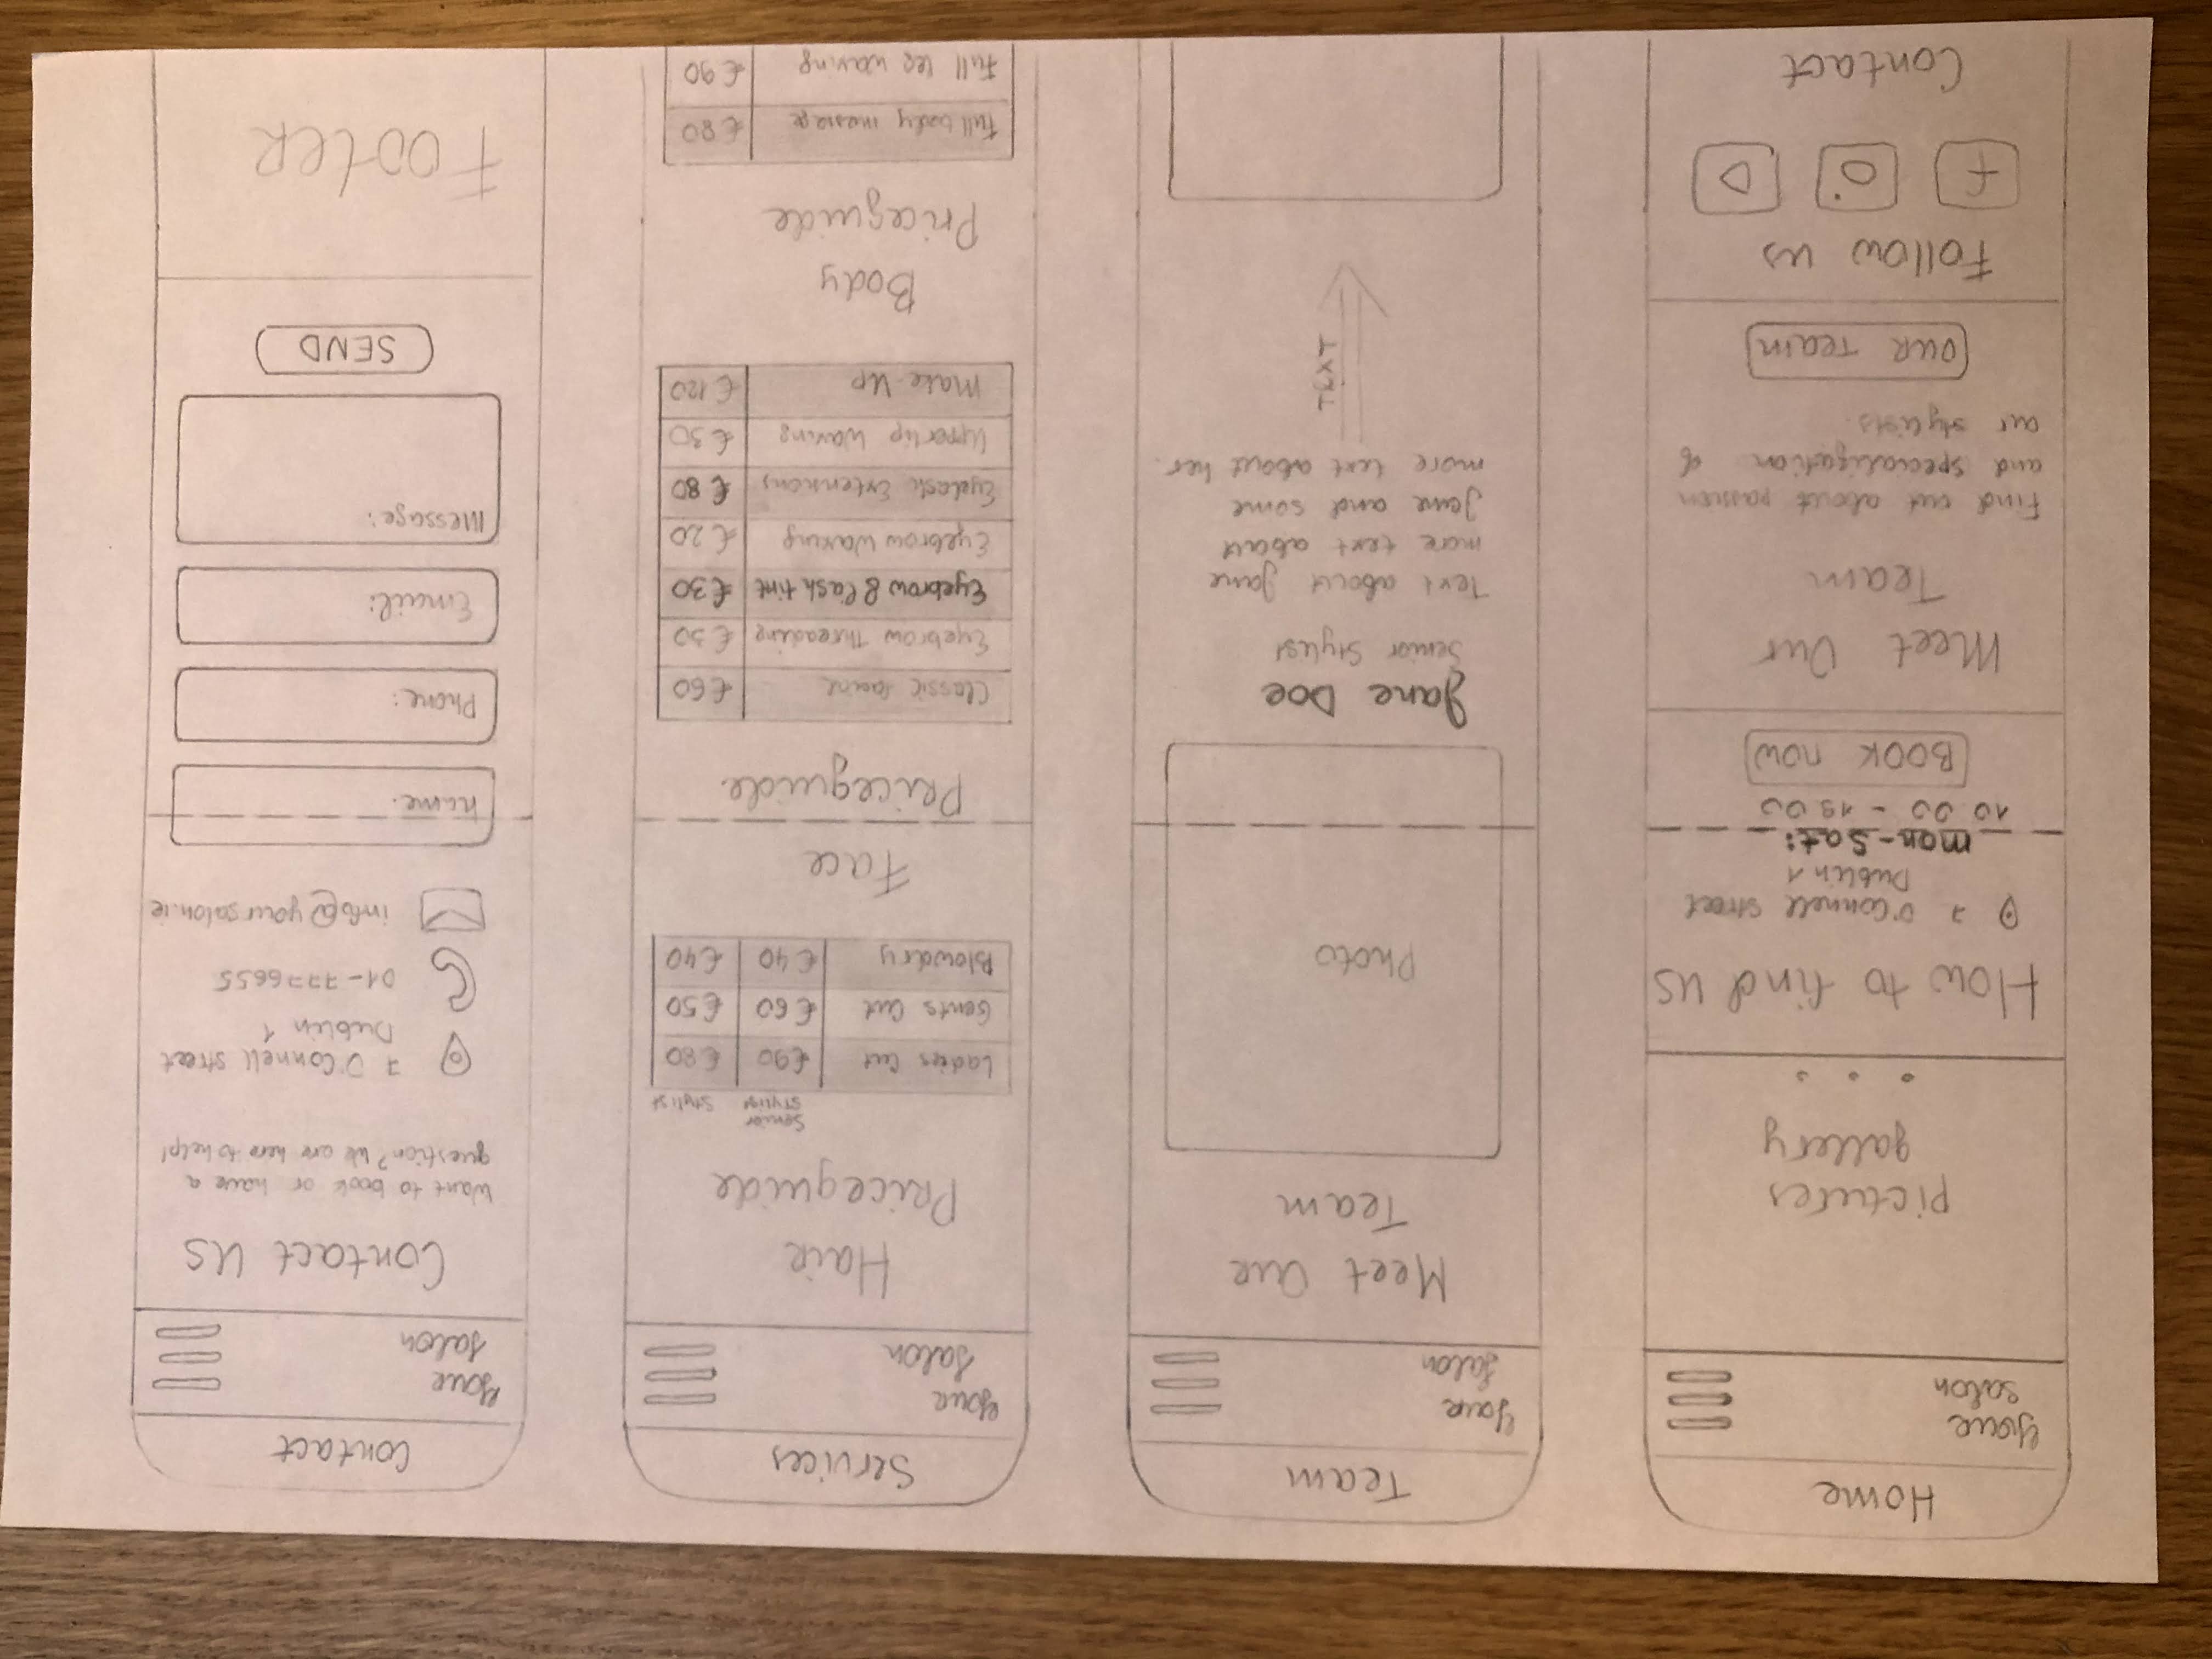 Home
Your
Salon
pictures
gallery
How to find us
7 O'Connell street
Dublin 1
mon-sat:
10.00 - 19.00
BOOK NOW
Meet Our
Team
Find out about passion
and specialization of
our stylists.
OUR TEAM
Follow us
f
Contact
Team
Your
Salon
Meet Our
Team
Photo
Jane Doe
Senior Stylist
Text about Jane
more text about
Jane and some
more text about her.
TEXT
Services
Your
Salon
Hair
Priceguide
Senior Stylist
Stylist
Ladies Cut €90 €80
Gents Cut €60 €50
Blowdry €40 €40
Face
Priceguide
Classic €60
Eyebrow Threading €30
Eyebrow & lash tint €30
Eyebrow Waxing €20
Eyelash Extensions €80
Upperlip Waxing €30
Make-Up €120
Body
Priceguide
Full body message €80
Full leg waxing €90
Contact
Your
Salon
Contact Us
Want to book or have a
question? We are here to help!
7 O'Connell street
Dublin 1
01-7776655
info@yoursalon.ie
Name:
Phone:
Email:
Message:
SEND
Footer